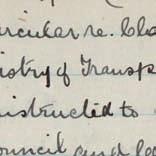 circular re. Cla
istry of Transp
instructed to
ouncil and